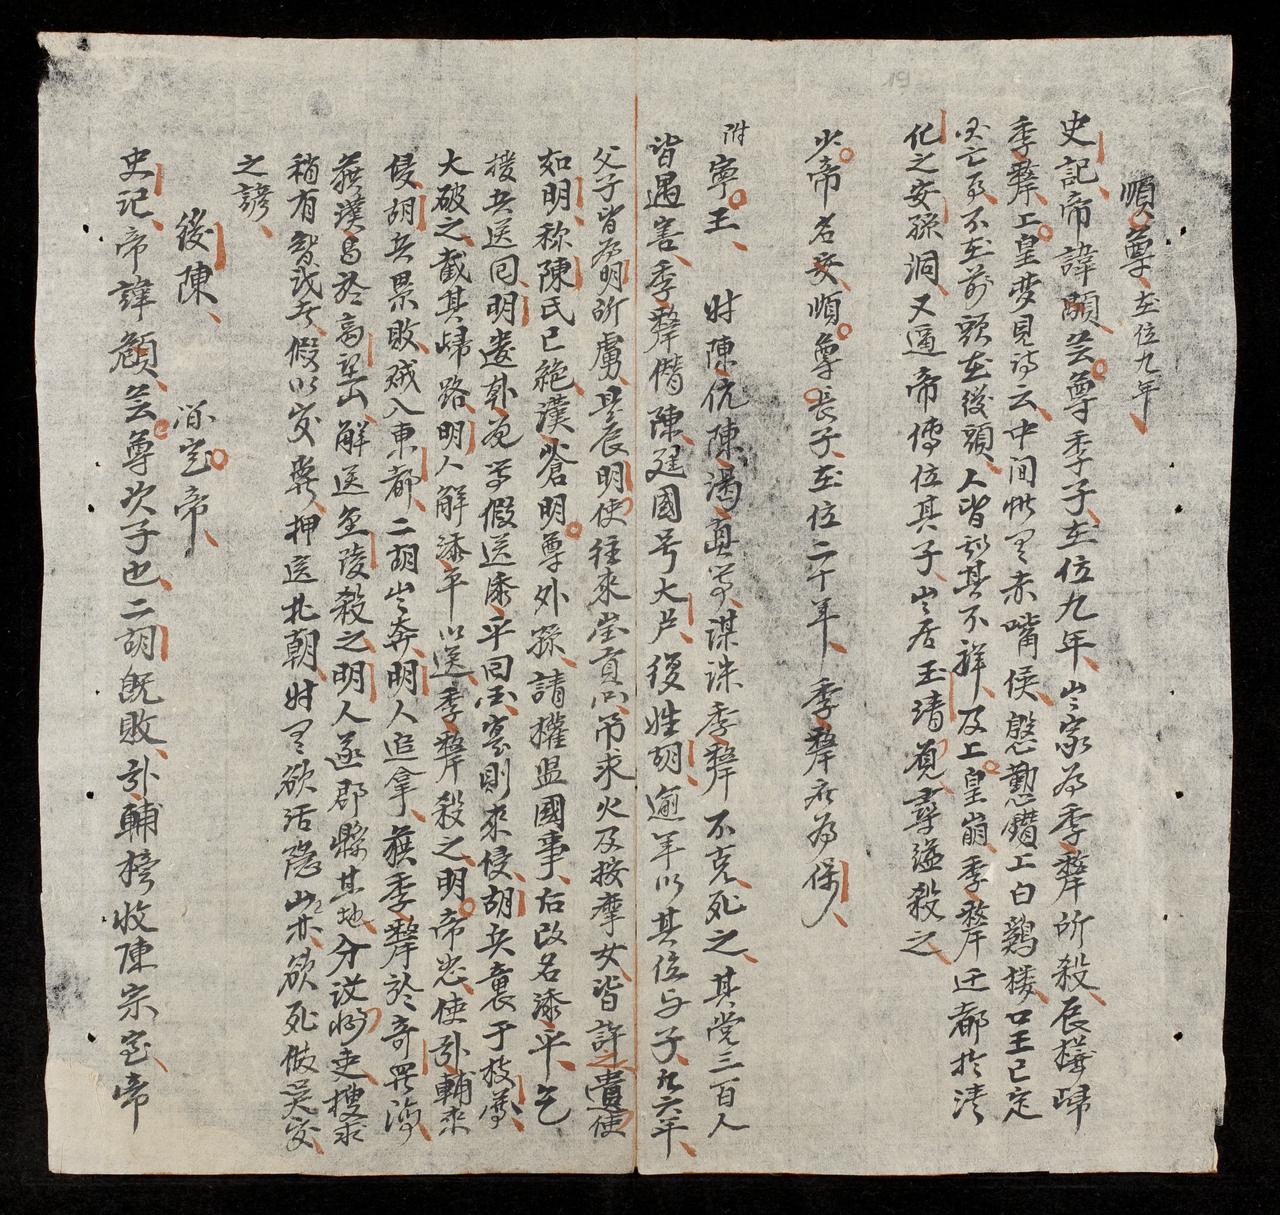 順尊在位九年
史記帝諱顒芸尊季子在位九年峕家為季犛所殺辰權歸
季犛上皇夢見詩云中間惟有赤嘴侯慇懃僭上白鷄楼口王已定
興亡事不在前頭在後頭人皆訝其不祥及上皇崩季犛迁都於清
化之安孫洞又逼帝傅位其子峕居玉清覌尋縊殺之
少帝名𤇊順尊長子在位二十年季犛府為保
附寧王時陳伉陳渴真等謀誅季犛不克死之其党三百人
皆遇害季犛僭陳建國号大虞復姓胡逾年以其位与子九六年
父子皆為明所虜是辰明使往來室貢只吊求火及按摩女皆許之遺使
如明称陳氏已絶漢蒼明尊外孫請權监國事右改名添平乞
援兵送囘明遣韩观等假送添平囘玉寔則來侵胡兵襄于枝㝵
大破之截其歸路明人解添平以送季犛殺之明帝怒使張輔來
侵胡兵累敗贼入東都二胡峕奔明人追拿獲季犛於奇罗海
獲漢昌於高望山解送金陵殺之明人遂郡縣其地分设将吏搜求
稍有智識者假以安兵押送北朝時有欲活隐山林欲死做吴官
之諺
後陳簡定帝
史记帝諱頠芸尊次子也二胡既敗張輔榜收陳宗室帝